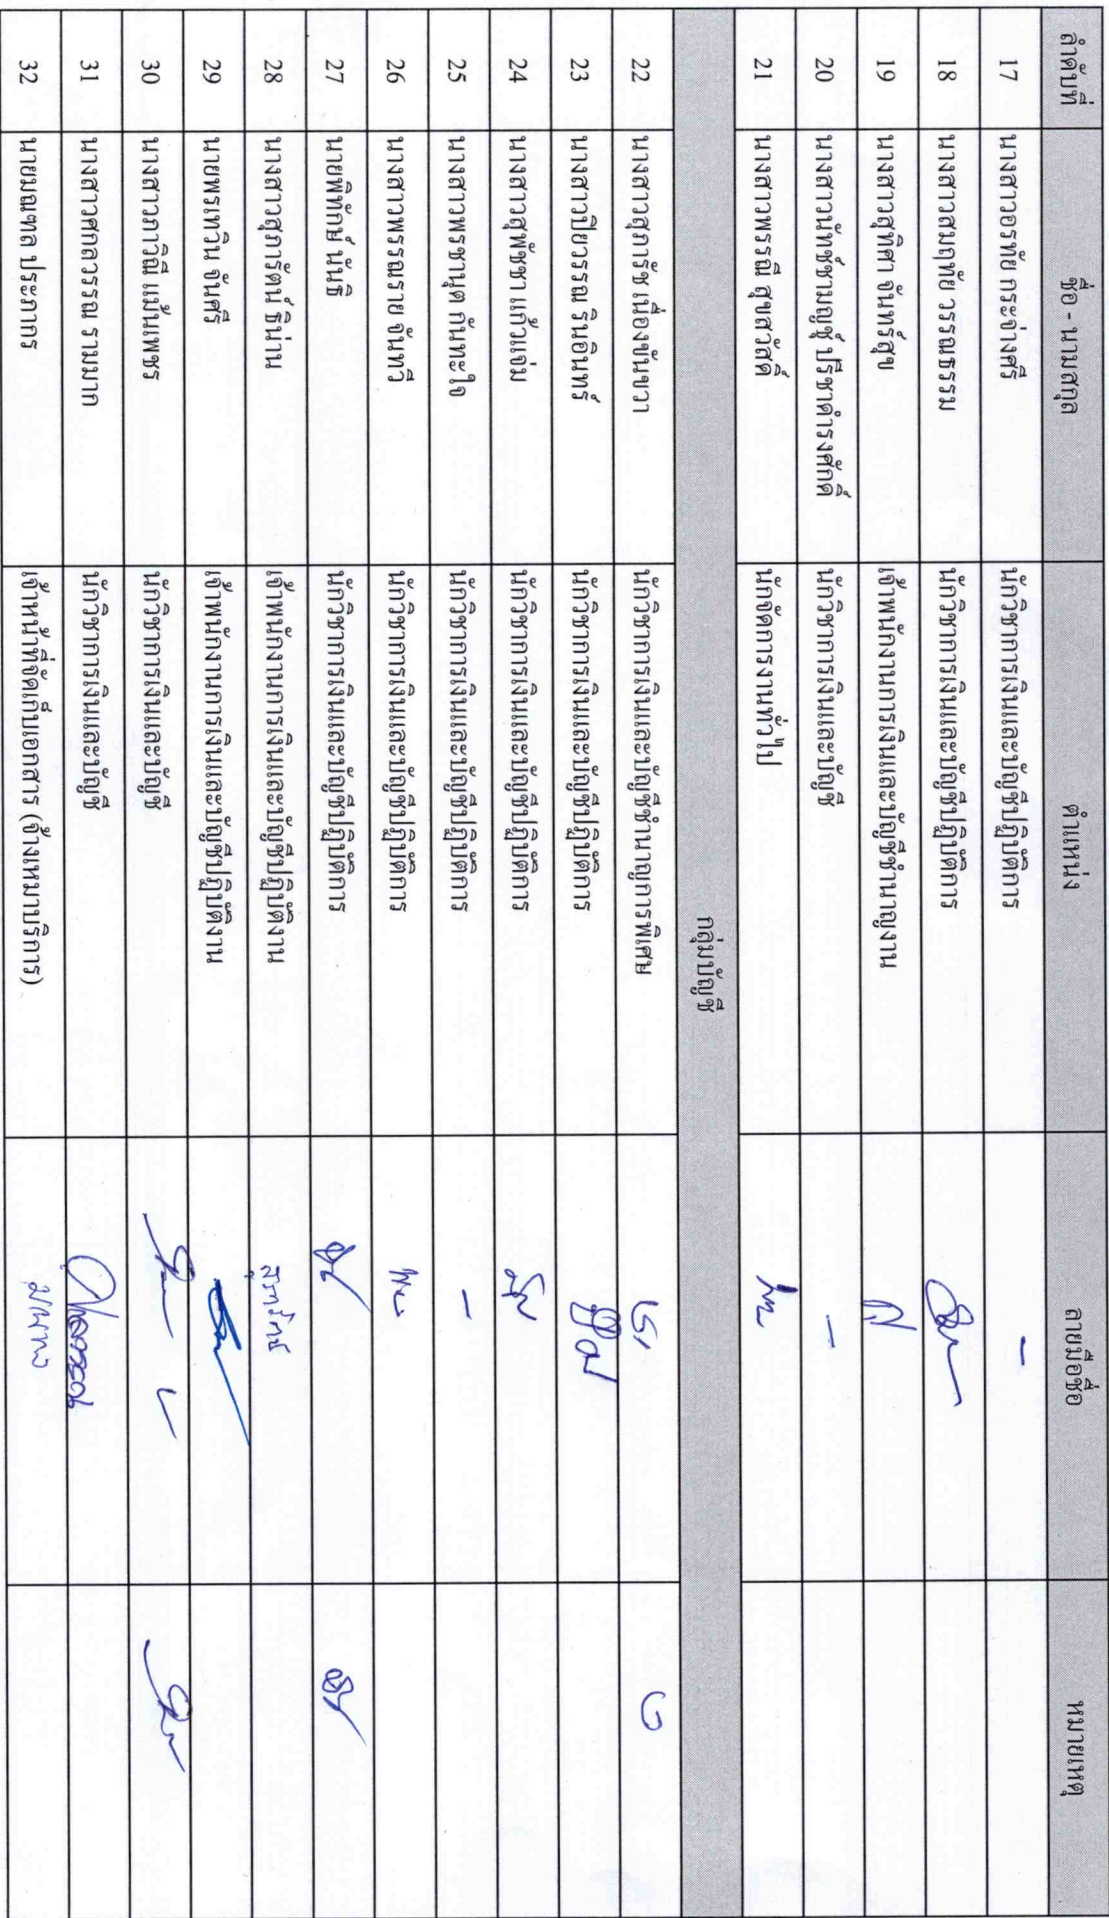 ลำดับที่ ชื่อ - นามสกุล ตำแหน่ง ลายมือชื่อ หมายเหตุ
17 นางสาวอรทัย กระจ่างศรี นักวิชาการเงินและบัญชีปฏิบัติการ -
18 นางสาวสมฤทัย วรรณธรรม นักวิชาการเงินและบัญชีปฏิบัติการ
19 นางสาวสุทิศา จันทร์สุข เจ้าพนักงานการเงินและบัญชีชำนาญงาน
20 นางสาวมัทซ์ชามญชุ์ ปรีชาดำรงศักดิ์ นักวิชาการเงินและบัญชี -
21 นางสาวพรรณี สุขสวัสดิ์ นักจัดการงานทั่วไป
กลุ่มบัญชี
22 นางสาวสุภารัช เนื่องขันขวา นักวิชาการเงินและบัญชีชำนาญการพิเศษ
23 นางสาวปิยวรรณ รินอินทร์ นักวิชาการเงินและบัญชีปฏิบัติการ
24 นางสาวสุพัชชา แก้วแจ่ม นักวิชาการเงินและบัญชีปฏิบัติการ
25 นางสาวพรชานุต กันทะใจ นักวิชาการเงินและบัญชีปฏิบัติการ -
26 นางสาวพรรณราย จันทวี นักวิชาการเงินและบัญชีปฏิบัติการ
27 นายพิทักษ์ นันธิ นักวิชาการเงินและบัญชีปฏิบัติการ
28 นางสาวสุภารัตน์ ธิน่าน เจ้าพนักงานการเงินและบัญชีปฏิบัติงาน
29 นายพรเทวิน จันศรี เจ้าพนักงานการเงินและบัญชีปฏิบัติงาน
30 นางสาวภาวิณี แม้นเพชร นักวิชาการเงินและบัญชี
31 นางสาวศกลวรรณ รามมาก นักวิชาการเงินและบัญชี
32 นายมณฑล ประกาคร เจ้าหน้าที่จัดเก็บเอกสาร (จ้างเหมาบริการ)